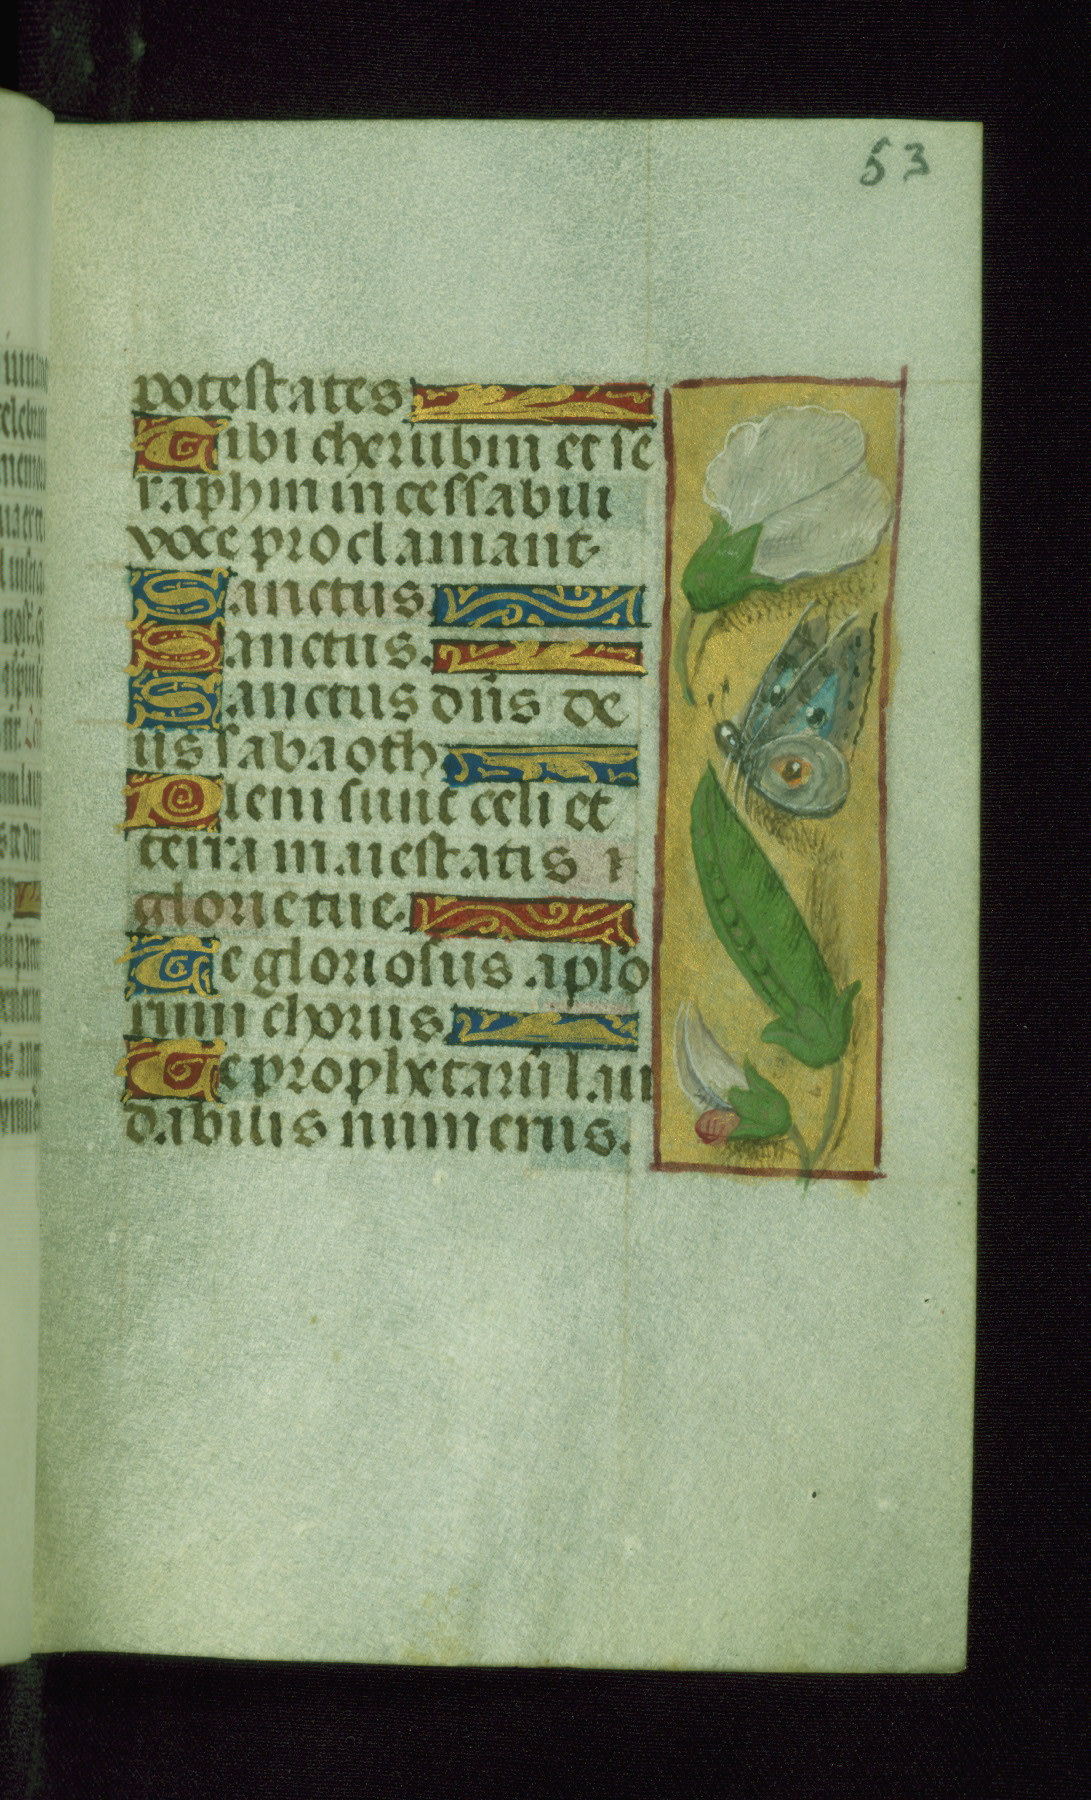 53
potestates
Tibi cherubin et se
raphin incessabili
voce proclamant
Sanctus.
Sanctus.
Sanctus dñs de
us sabaoth
Pleni sunt celi et
terra maiestatis ⁊
glorie tue.
Te gloriosus aplo
rum chorus
Te prophetarū lau
dabilis numerus.